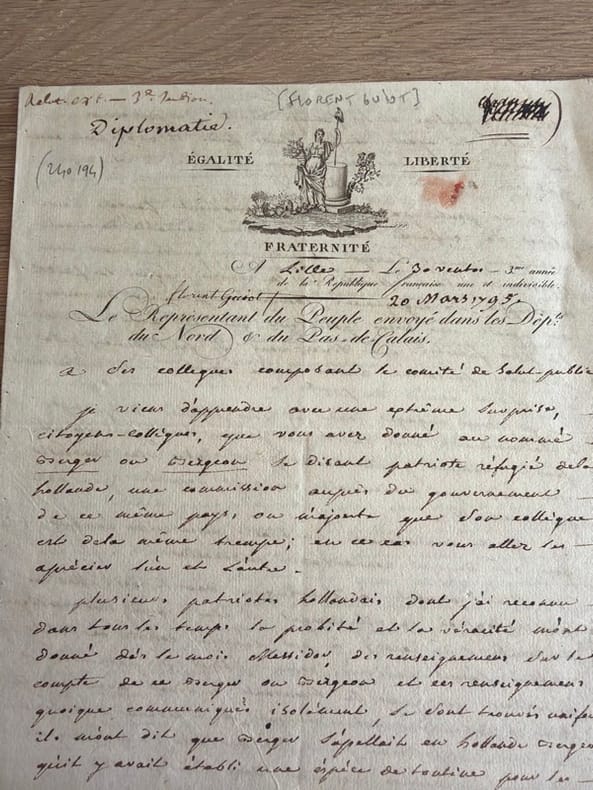 3e
[FLORENT GUIOT]
Diplomatie.
(240 194)
ÉGALITÉ LIBERTÉ
FRATERNITÉ
A Lille — Le 30 ventos — 3me année
de la République française une et indivisible.
florent Guiot 20 Mars 1795.
Le Représentant du Peuple envoyé dans les Dépts.
du Nord & du Pas-de-Calais.
a ses collegues composant le comité de Salut-public
je viens d'apprendre avec une extrême surprise,
citoyens-collègues, que vous avez donné au nommé
Berger ou Bergeon se disant patriote réfugié de la
hollande, une commission auprès du gouvernement
de ce même pays. on m'ajoute que son collègue
est de la même trempe; en ce cas vous allez les
apprécier l'un et l'autre.
plusieurs patriotes hollandais dont j'ai reconnu
dans tous les temps la probité et la véracité m'ont
donné dès le mois Messidor, des renseignemens sur le
compte de ce Berger ou Bergeon et ces renseignemens
quoique communiqués isolément, se sont trouvés
ils m'ont dit que Berger s'apellait en hollande
qu'il y avait établi une espèce de tontine pour les